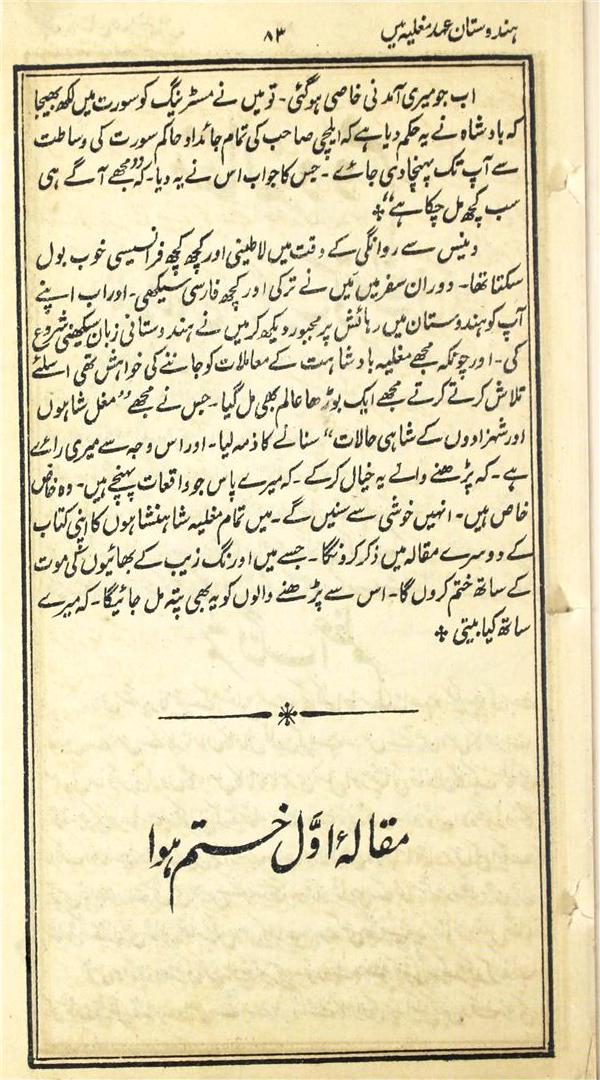 ہندوستان عہد مغلیہ میں
۸۳
اب جو میری آمدنی خاصی ہوگئی۔ تو میں نے مسٹر ینگ کو سورت میں لکھ بھیجا
کہ بادشاہ نے یہ حکم دیا ہے کہ ایلچی صاحب کی تمام جائداد حاکم سورت کی وساطت
سے آپ تک پہنچا دی جائے۔ جس کا جواب اس نے یہ دیا۔ کہ "مجھے آگے ہی
سب کچھ مل چکا ہے"
ونیس سے روانگی کے وقت میں لاطینی اور کچھ کچھ فرانسیسی خوب بول
سکتا تھا۔ دوران سفر میں مَیں نے ترکی اور کچھ فارسی سیکھی۔ اور اب اپنے
آپ کو ہندوستان میں رہائش پر مجبور دیکھ کر میں نے ہندوستانی زبان سکھنی شروع
کی۔ اور چونکہ مجھے مغلیہ بادشاہت کے معاملات کو جاننے کی خواہش تھی اسلئے
تلاش کرتے کرتے مجھے ایک بوڑھا عالم بھی مل گیا۔ جس نے مجھے "مغل شاہوں
اور شہزادوں کے شاہی حالات" سنانے کا ذمہ لیا۔ اور اس وجہ سے میری رائے
ہے۔ کہ پڑھنے والے یہ خیال کرکے۔ کہ میرے پاس جو واقعات پہنچے ہیں۔ وہ خاص
خاص ہیں۔ انہیں خوشی سے سنیں گے۔ میں تمام مغلیہ شاہنشاہوں کا اپنی کتاب
کے دوسرے مقالہ میں ذکر کرونگا۔ جسے میں اورنگ زیب کے بھائیوں کی موت
کے ساتھ ختم کروں گا۔ اس سے پڑھنے والوں کو یہ بھی پتہ مل جائیگا۔ کہ میرے
ساتھ کیا بیتی
مقالۂ اوّل ختم ہوا